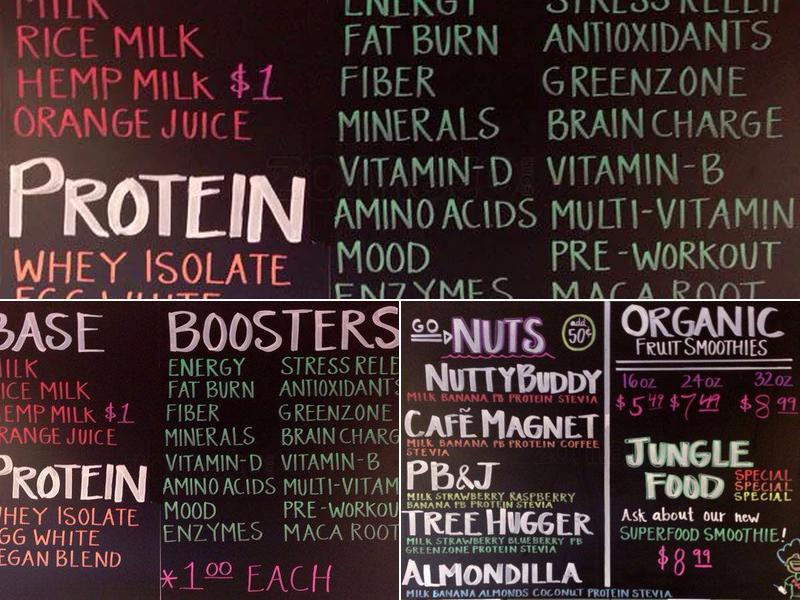 MILK
RICE MILK
HEMP MILK $1
ORANGE JUICE
PROTEIN
WHEY ISOLATE
EGG WHITE
ENERGY
FAT BURN
FIBER
MINERALS
VITAMIN-D
AMINO ACIDS
MOOD
ENZYMES
STRESS RELIEF
ANTIOXIDANTS
GREENZONE
BRAIN CHARGE
VITAMIN-B
MULTI-VITAMIN
PRE-WORKOUT
MACA ROOT
BASE
MILK
RICE MILK
HEMP MILK $1
ORANGE JUICE
PROTEIN
WHEY ISOLATE
EGG WHITE
VEGAN BLEND
BOOSTERS
ENERGY
FAT BURN
FIBER
MINERALS
VITAMIN-D
AMINO ACIDS
MOOD
ENZYMES
STRESS RELIE
ANTIOXIDANTS
GREENZONE
BRAIN CHARG
VITAMIN-B
MULTI-VITAM
PRE-WORKOU
MACA ROOT
*1.00 EACH
GO NUTS
add 50¢
NUTTY BUDDY
MILK BANANA PB PROTEIN STEVIA
CAFÉ MAGNET
MILK BANANA PB PROTEIN COFFEE
STEVIA
PB&J
MILK STRAWBERRY RASPBERRY
BANANA PB PROTEIN STEVIA
TREE HUGGER
MILK STRAWBERRY BLUEBERRY PB
GREENZONE PROTEIN STEVIA
ALMONDILLA
MILK BANANA ALMONDS COCONUT PROTEIN STEVIA
ORGANIC
FRUIT SMOOTHIES
16oz 24oz 32oz
$5.49 $7.49 $8.99
JUNGLE
FOOD
SPECIAL
SPECIAL
SPECIAL
Ask about our new
SUPERFOOD SMOOTHIE!
$8.99